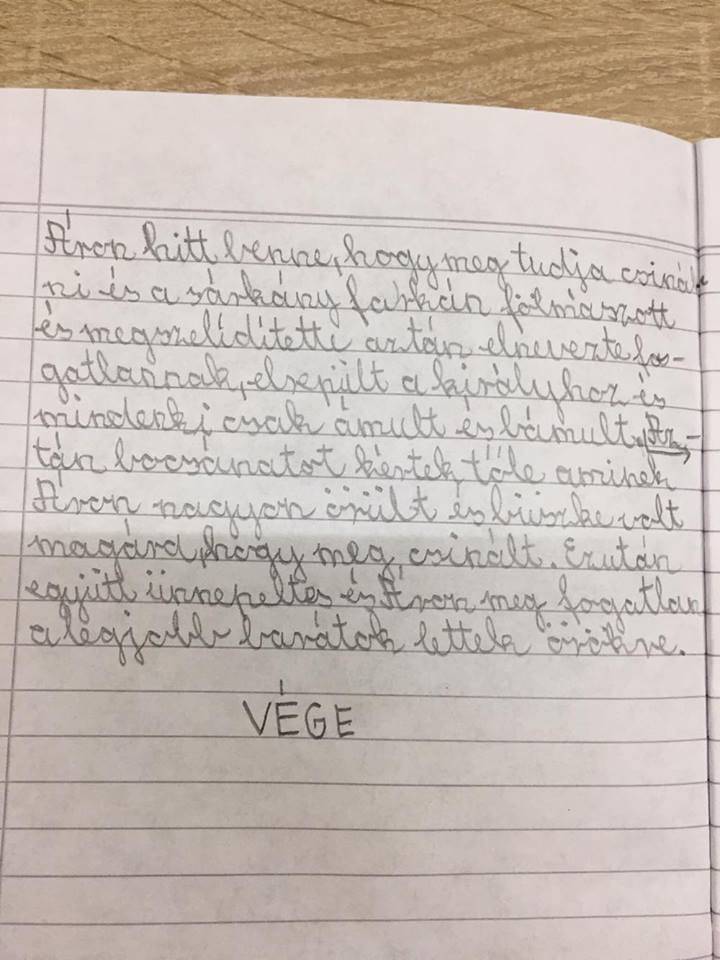 Áron hitt benne, hogy meg tudja csinál-
ni és a sárkány farkán fölmászott
és megszelídítette aztán elnevezte fo-
gatlannak, elrepült a királyhoz és
mindenki csak ámult és bámult. Az-
tán bocsánatot kértek tőle aminek
Áron nagyon örült és büszke volt
magára, hogy meg csinált. Ezután
együtt ünnepeltes és Áron meg fogatlan
a legjobb barátok lettek örökre.
VÉGE